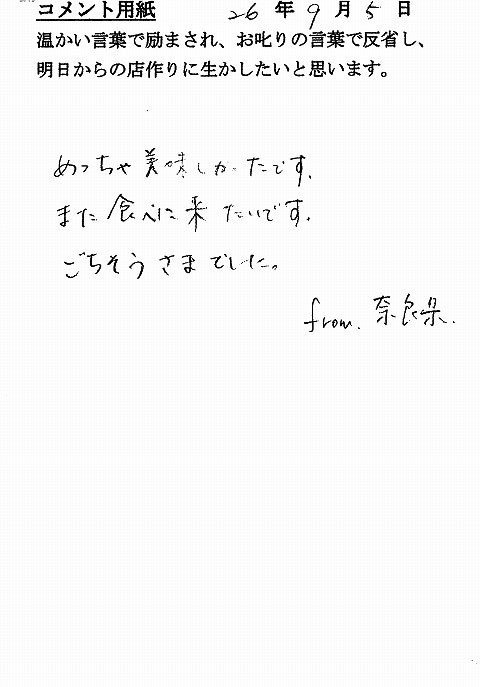 コメント用紙 26年9月5日
温かい言葉で励まされ、お叱りの言葉で反省し、
明日からの店作りに生かしたいと思います。
めっちゃ美味しかったです.
また食べに来たいです.
ごちそうさまでした。
from. 奈良県.